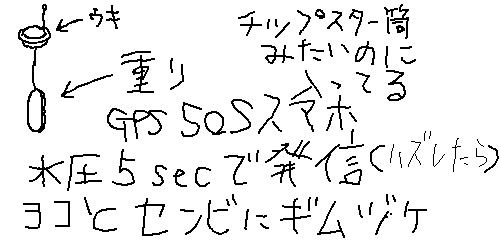 ウキ
チップスター筒
みたいのに
入ってる
重り
GPS SOSスマホ
水圧5secで発信(ハズレたら)
ヨコヾとセンビにギムヅケ